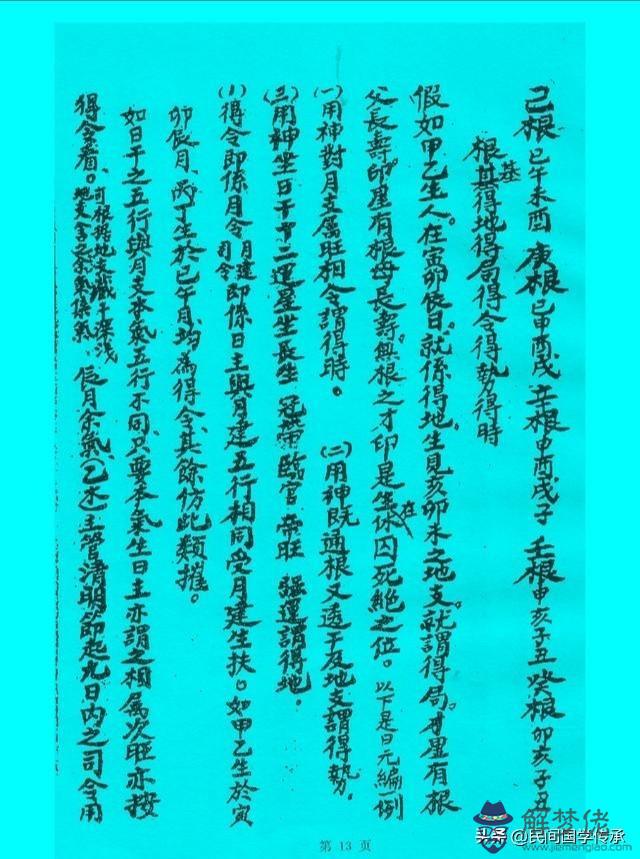 己根巳午未酉 庚根巳申酉戌 辛根申酉戌子 壬根申亥子丑 癸根卯亥子丑
根基得地得局得令得勢得時
假如甲乙生人。在寅卯辰日。就係得地。生見亥卯未之地支。就謂得局。才星有根
父長壽。印星有根母長壽。無根之才印是坐在休囚死絕之位。以下是日元編一例
(一)用神對月支属旺相令謂得時。 (二)用神既通根又透干及地支謂得勢。
(三)用神坐日干十二運星生長生 冠帶 臨官 帝旺 強運謂得地。
(1)得令即係月令月建司令即係日主與月建五行相同受月建生扶。如甲乙生於寅
卯辰月、丙丁生於巳午月、均為得令、其餘仿此類推。
如日干之五行與月支本氣五行不同、只要本氣生日主亦謂之相属次旺亦按
得令看。可根據地支藏干深浅地支含余氣集氣、辰月余氣(乙木)主管清明節起九日内之司令用
第 13 页
解梦佬
www.jiemenglao.com
头条 @民间国学传承